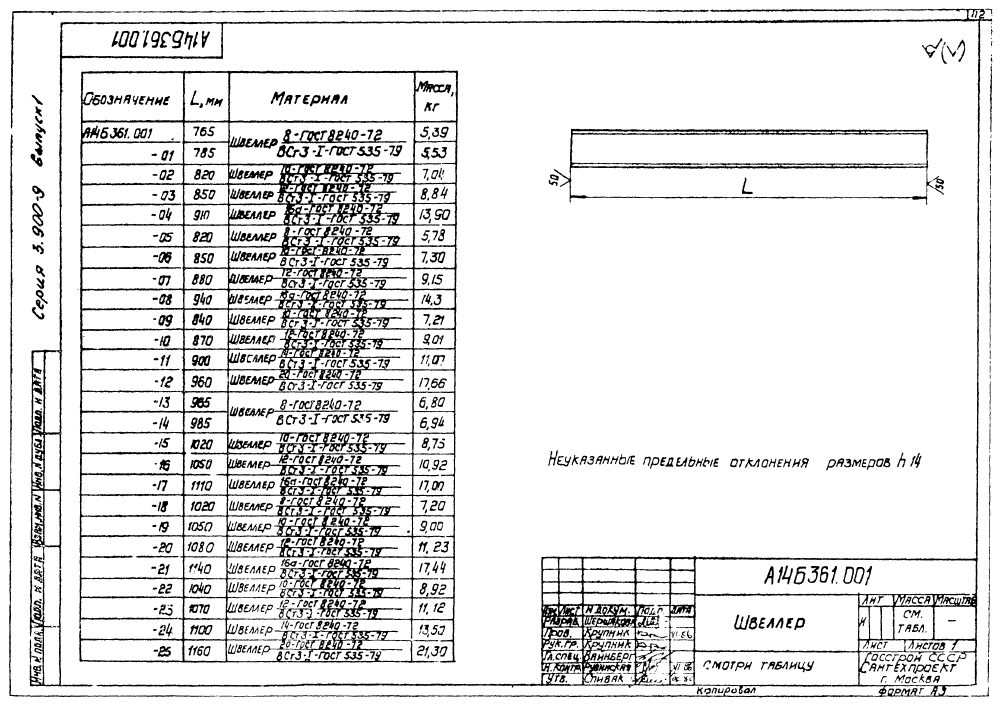 112
А14Б361.001
Серия 3.900-9 выпуск 1
Обозначение L, мм Материал Масса, кг
А14Б361.001 765 Швеллер 8-ГОСТ 8240-72 / ВСт3-I-ГОСТ 535-79 5,39
-01 785 5,53
-02 820 Швеллер 10-ГОСТ 8240-72 / ВСт3-I-ГОСТ 535-79 7,04
-03 850 Швеллер 12-ГОСТ 8240-72 / ВСт3-I-ГОСТ 535-79 8,84
-04 910 Швеллер 16а-ГОСТ 8240-72 / ВСт3-I-ГОСТ 535-79 13,90
-05 820 Швеллер 8-ГОСТ 8240-72 / ВСт3-I-ГОСТ 535-79 5,78
-06 850 Швеллер 10-ГОСТ-8240-72 / ВСт3-I-ГОСТ 535-79 7,30
-07 880 Швеллер 12-ГОСТ 8240-72 / ВСт3-I-ГОСТ 535-79 9,15
-08 940 Швеллер 16а-ГОСТ 8240-72 / ВСт3-I-ГОСТ 535-79 14,3
-09 840 Швеллер 10-ГОСТ 8240-72 / ВСт3-I-ГОСТ 535-79 7,21
-10 870 Швеллер 12-ГОСТ 8240-72 / ВСт3-I-ГОСТ 535-79 9,01
-11 900 Швеллер 14-ГОСТ 8240-72 / ВСт3-I-ГОСТ 535-79 11,07
-12 960 Швеллер 20-ГОСТ 8240-72 / ВСт3-I-ГОСТ 535-79 17,66
-13 965 Швеллер 8-ГОСТ 8240-72 / ВСт3-I-ГОСТ 535-79 6,80
-14 985 6,94
-15 1020 Швеллер 10-ГОСТ 8240-72 / ВСт3-I-ГОСТ 535-79 8,75
-16 1050 Швеллер 12-ГОСТ 8240-72 / ВСт3-I-ГОСТ 535-79 10,92
-17 1110 Швеллер 16а-ГОСТ 8240-72 / ВСт3-I-ГОСТ 535-79 17,00
-18 1020 Швеллер 8-ГОСТ 8240-72 / ВСт3-I-ГОСТ 535-79 7,20
-19 1050 Швеллер 10-ГОСТ 8240-72 / ВСт3-I-ГОСТ 535-79 9,00
-20 1080 Швеллер 12-ГОСТ 8240-72 / ВСт3-I-ГОСТ 535-79 11,23
-21 1140 Швеллер 16а-ГОСТ 8240-72 / ВСт3-I-ГОСТ 535-79 17,44
-22 1040 Швеллер 10-ГОСТ 8240-72 / ВСт3-I-ГОСТ 535-79 8,92
-23 1070 Швеллер 12-ГОСТ 8240-72 / ВСт3-I-ГОСТ 535-79 11,12
-24 1100 Швеллер 14-ГОСТ 8240-72 / ВСт3-I-ГОСТ 535-79 13,50
-25 1160 Швеллер 20-ГОСТ 8240-72 / ВСт3-I-ГОСТ 535-79 21,30
50 L 50
Неуказанные предельные отклонения размеров h14
Инв.N подл. Подп. и дата Взам.инв.N Инв.N дубл Подп. и дата
А14Б361.001
Изм Лист N докум. Подп. Дата
Разраб. Шершакова
Пров. Крупник VI 86
Рук.гр. Крупник
Гл.спец. Вайнберг
Н.контр. Рувинская VI 86
Утв. Спивак
Швеллер
Смотри таблицу
Лит Масса Масштаб
И см. табл. –
Лист Листов 1
Госстрой СССР
Сантехпроект
г. Москва
Копировал Формат А3